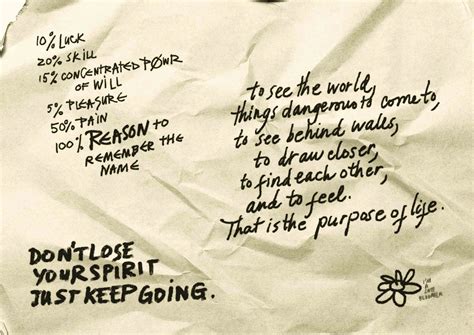 10% LUCK
20% SKILL
15% CONCENTRATED PØWR
OF WILL
5% PLEASURE
50% PAIN
100% REASON TO
REMEMBER THE
NAME
to see the world,
things dangerous to come to,
to see behind walls,
to draw closer,
to find each other,
and to feel.
That is the purpose of life.
DON'T LOSE
YOUR SPIRIT
JUST KEEP GOING.
I'M
A
LATE
BLOOMER